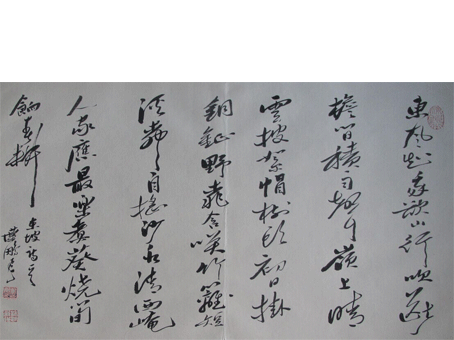 東風知我欲山行吹斷
檐間積雨聲嶺上晴
雲披絮帽樹頭初日掛
銅鉦野桃含笑竹籬短
溪柳自搖沙水清西崦
人家應最樂煮葵燒筍
餉春耕
東坡詩